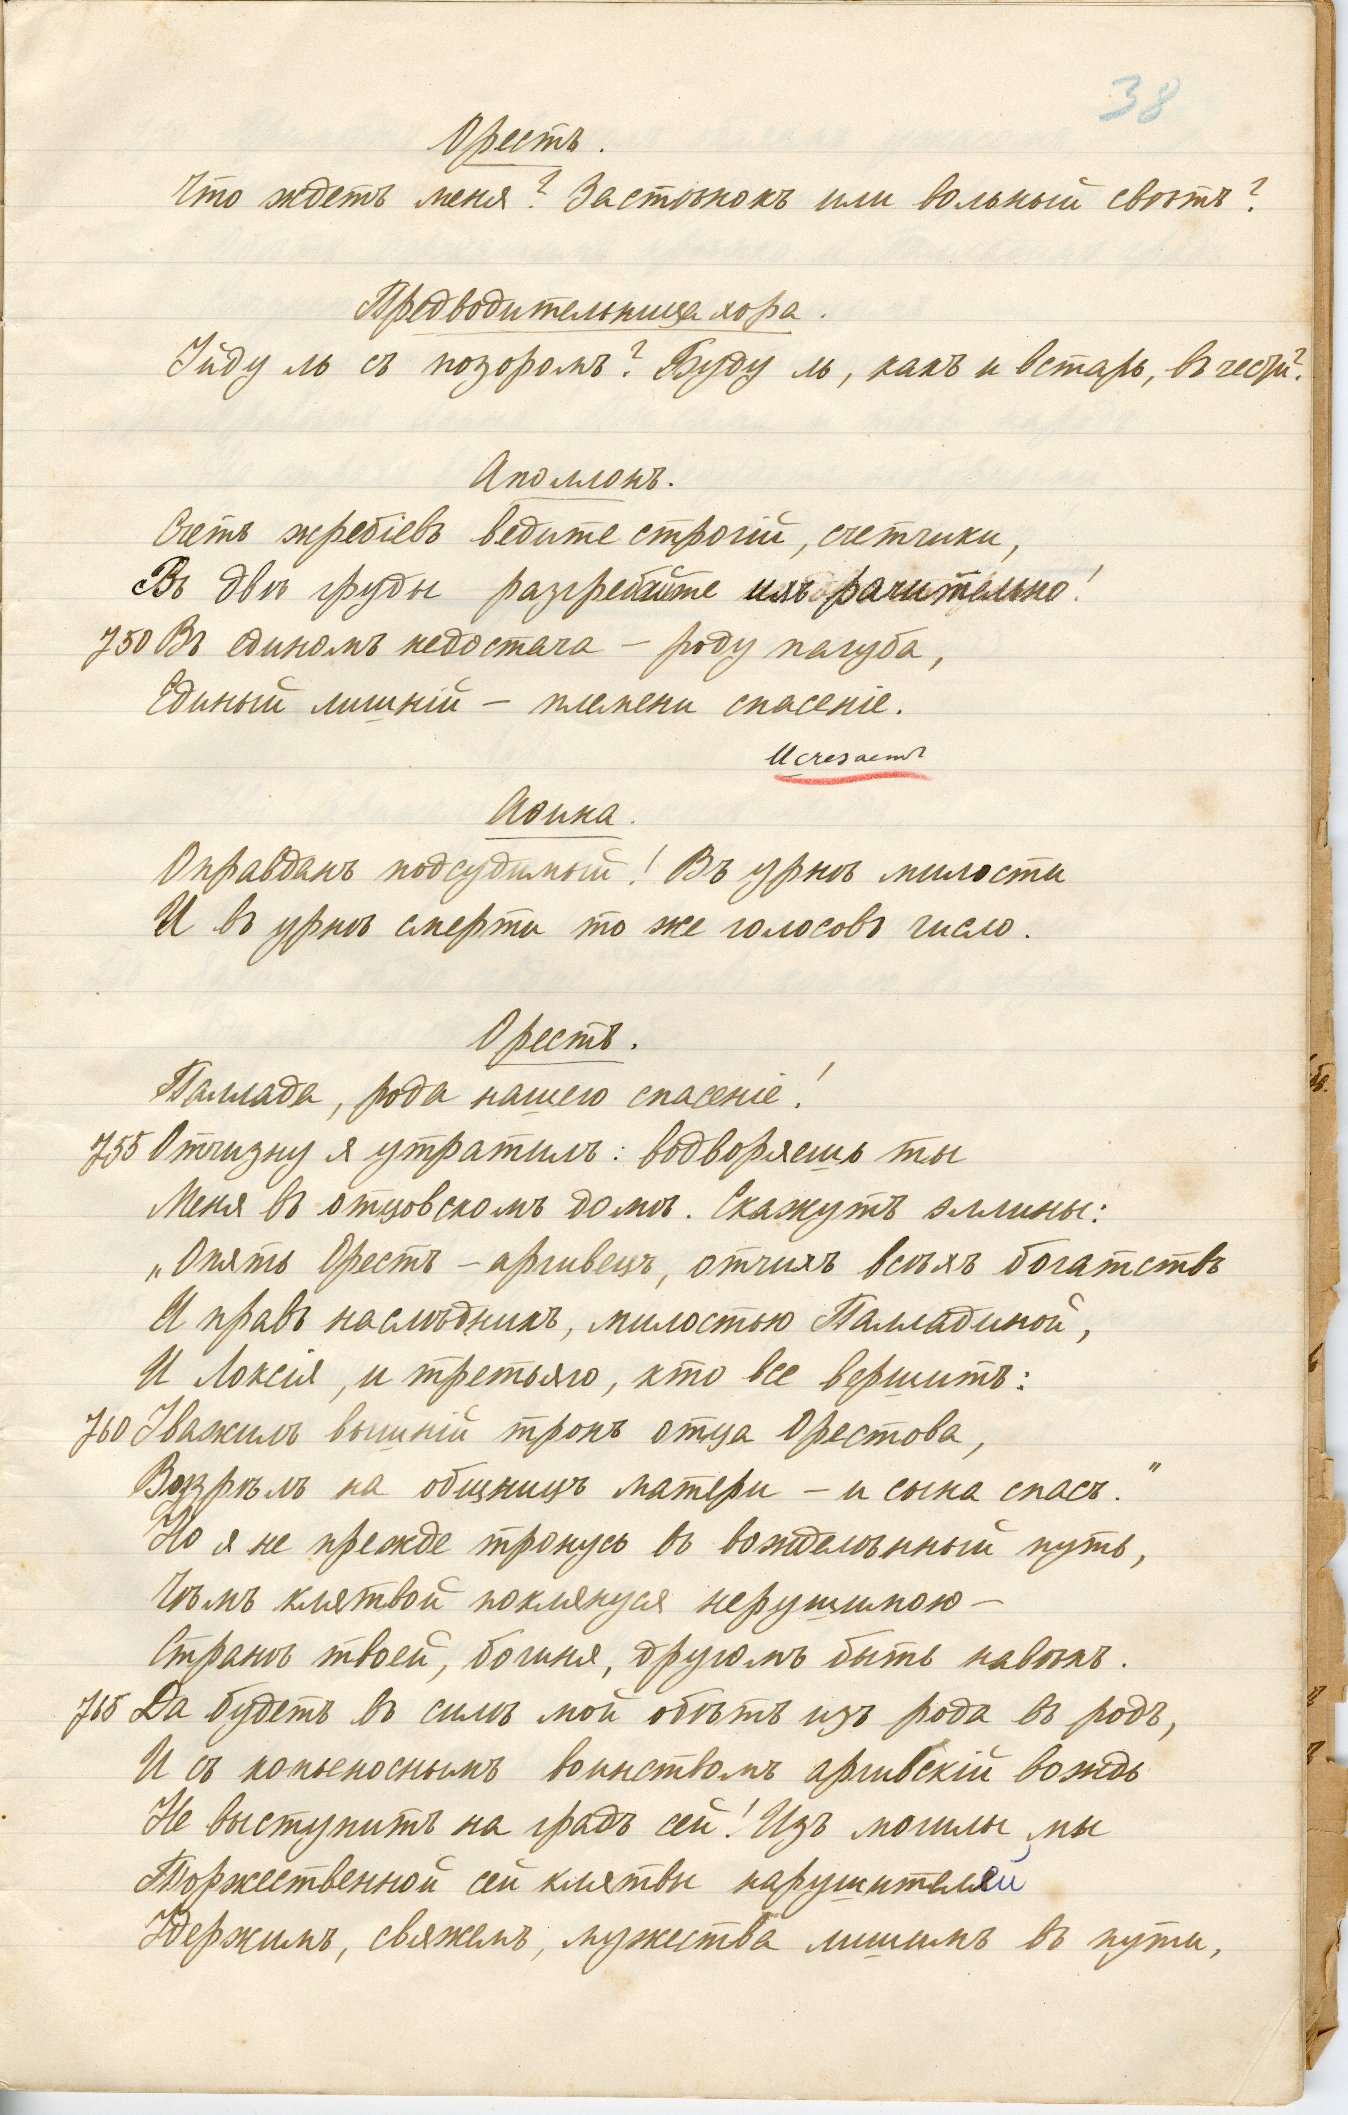 38
Орестъ.
Что ждетъ меня? Застѣнокъ или вольный свѣтъ?
Предводительница хора.
Уйду ль съ позоромъ? Буду ль, какъ и встарь, въ чести?
Аполлонъ.
Счетъ жребіевъ ведите строгій, счетчики,
Въ двѣ груды разгребайте ихъ рачительно!
750 Въ единомъ недостача – роду пагуба,
Единый лишній – племени спасеніе.
Исчезаетъ
Аѳина.
Оправданъ подсудимый! Въ урнѣ милости
И въ урнѣ смерти то же голосовъ число.
Орестъ.
Паллада, рода нашего спасеніе!
755 Отчизну я утратилъ: водворяешь ты
Меня въ отцовскомъ домѣ. Скажутъ эллины:
„Опять Орестъ – аргивецъ, отчихъ всѣхъ богатствъ
И правъ наслѣдникъ, милостью Палладиной,
И Локсія, и третьяго, кто все вершитъ:
760 Уважилъ вышній тронъ отца Орестова,
Воззрѣлъ на общницъ матери – и сына спасъ.“
Но я не прежде тронусь въ вожделѣнный путь,
Чѣмъ клятвой поклянуся нерушимою –
Странѣ твоей, богиня, другомъ быть навѣкъ.
765 Да будетъ въ силѣ мой обѣтъ изъ рода въ родъ,
И съ копьеноснымъ воинствомъ аргивскій вождь
Не выступитъ на градъ сей! Изъ могилы мы
Торжественной сей клятвы нарушителей
Удержимъ, свяжемъ, мужества лишимъ въ пути,